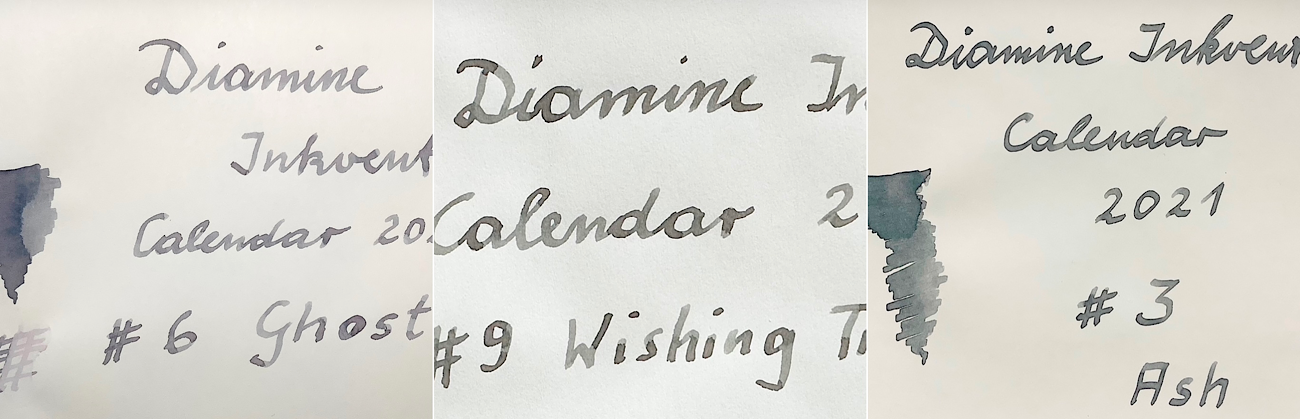 Diamine
Inkvent
Calendar 20
# 6 Ghost
Diamine In
Calendar 2
#9 Wishing Tr
Diamine Inkvent
Calendar
2021
# 3
Ash